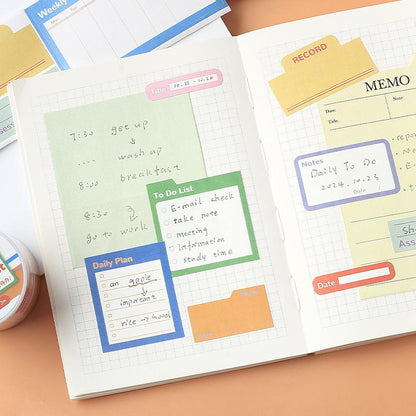 Weekly
Title 10.21 - 10.26
7:30 get up
.... wash up
8:00 breakfast
8:30
go to work
To Do List
E-mail check
take note
meeting
Information
study time
Daily Plan
an apple
important
rice →
RECORD
MEMO
Date:
Note:
Title:
Notes
Daily To Do
2024. 10. 23
Date
Date